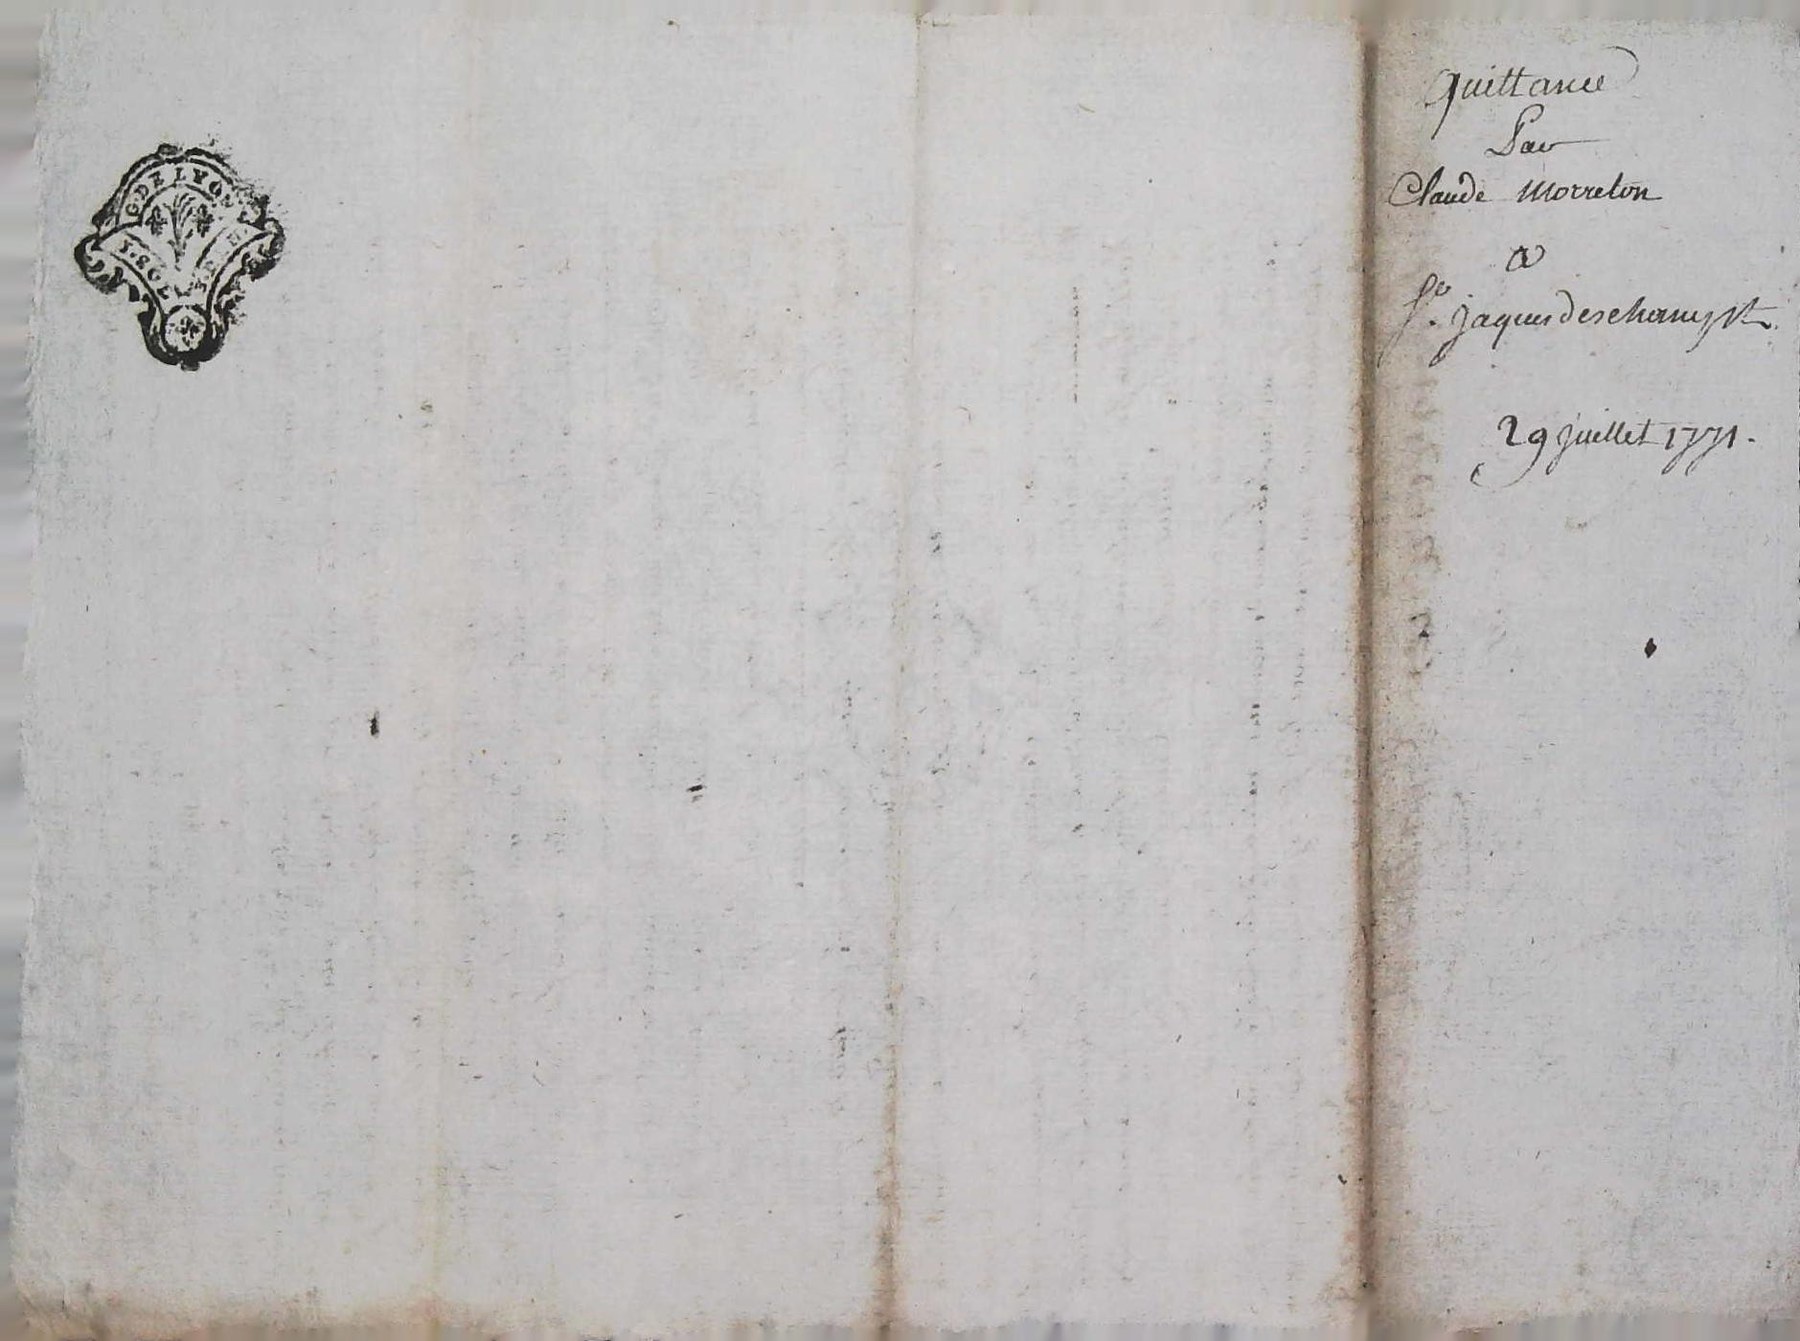 G. DE LYON
1. SOL
Quittance
Par
Claude Morreton
a
Sr. Jaques deschamps
29 juillet 1771.